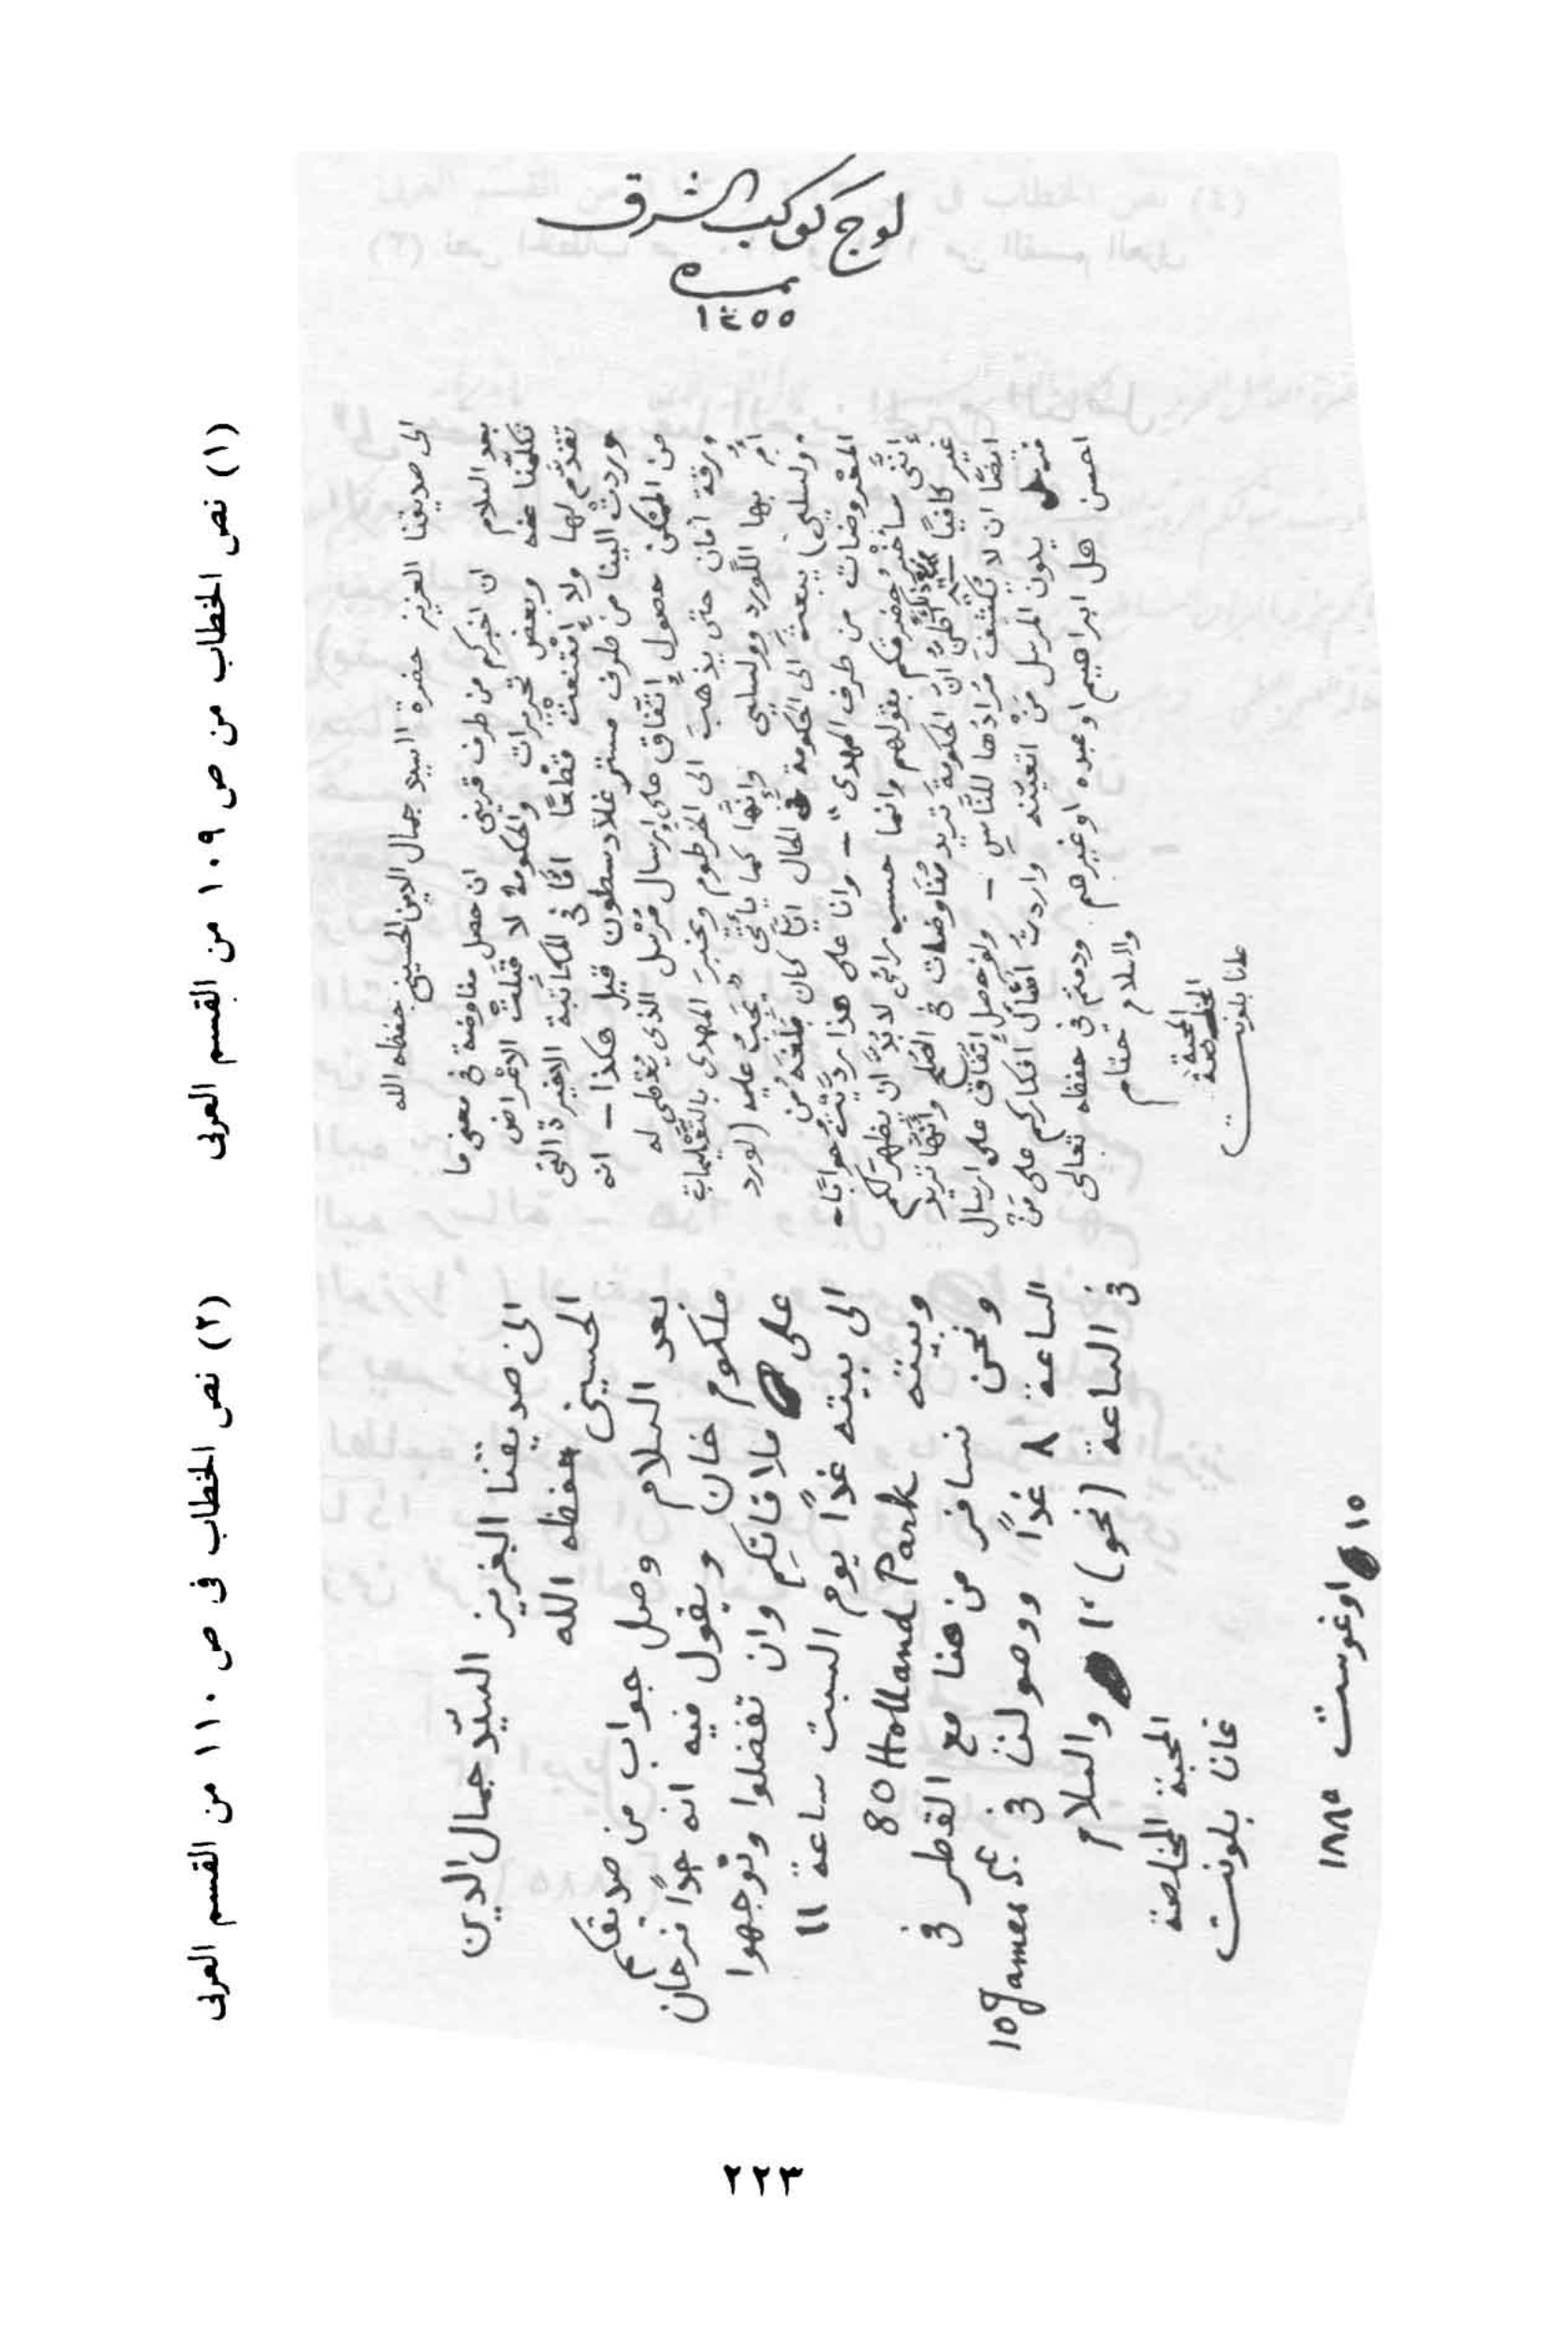 لوج كوكب الشرق
نمره
١٣٥٥
(١) نص الخطاب من ص ١٠٩ من القسم العربى
الى صديقنا العزيز حضرة السيد جمال الدين الحسينى حفظه الله
بعد السلام ان اخبركم من طرف قرينى ان حصل مفاوضة فى معنى ما
تكلمنا عنه وبعض تحريرات والحكومة لا قبلت الاغراض التى
تقدم لها ولا امتنعت قطعًا امّا فى المكاتبة الاخيرة التى
وردت الينا من طرف مستر غلادسطون قيل هكذا – انه
من الممكن حصول إتّفاق على إرسال مُرْسل الذى يُعْطى له
ورقة أمان حتى يذهب الى الخرطوم ويخبر المهدى بالتَّعْليمات
أمر بها اللّورد وولسلى وانّها كما يأتى "يجب عليه (لورد
وولسلى) يبعث الى الحكومة فى الحال ايًّا كان بلغه من
المعروضات من طرف المهدى" – وانا على هذا ردّيت جوابًا
أنّنى سأخبر حضرتكم بقولهم وانما حسب رائى لا بُدَّ ان يظهر لكم
غير كافيًا اظنُّ أنّ الحكومة تريد مفاوضات فى الصُلح وأنّها تريد
ايضًا ان لا تكشف مُرادها للنَّاس – ولو حصل اتّفاق على ارسال
يكون المرسل مَنْ اتعيّنه واردتُ أسْأل افكاركم على مَن
احسن هل ابراهيم او عبده او غيرهم ودمتم فى حفظه تعالى
والسلام ختام
المحبة
المخلصة
حنا بلونت
(٢) نص الخطاب فى ص ١١٠ من القسم العربى
الى صديقنا العزيز السيّد جمال الدين
الحسينى حفظه الله
بعد السلام وصل جواب من صديقكم
ملكوم خان ويقول فيه انه جدًا فرحان
على ملاقاتكم وان تفضلوا وتوجهوا
الى بيته غدًا يوم السبت ساعة ١١
وبيته 80 Holland Park
ونحن نسافر من هنا مع القطر فى
الساعة ٨ غدًا ووصولنا فى 10 James St.
فى الساعة (نحو) ١٠ والسلام
المحبة المخلصة
حانا بلونت
١٥ اوغوست ١٨٨٥
٢٢٣